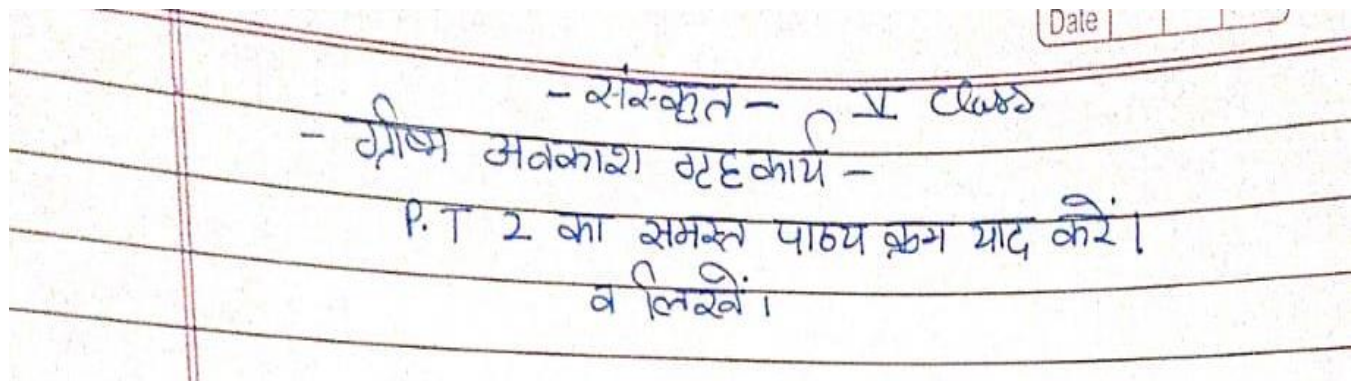 Date
- संस्कृत - V Class
- ग्रीष्म अवकाश गृहकार्य -
P.T 2 का समस्त पाठ्य क्रम याद करें।
व लिखें।